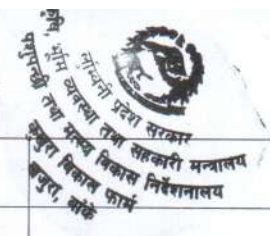 लुम्बिनी प्रदेश सरकार
कृषि, भूमि व्यवस्था तथा सहकारी मन्त्रालय
पशुपन्छी तथा मत्स्य विकास निर्देशनालय
कुखुरा विकास फार्म
खजुरा, बाँके